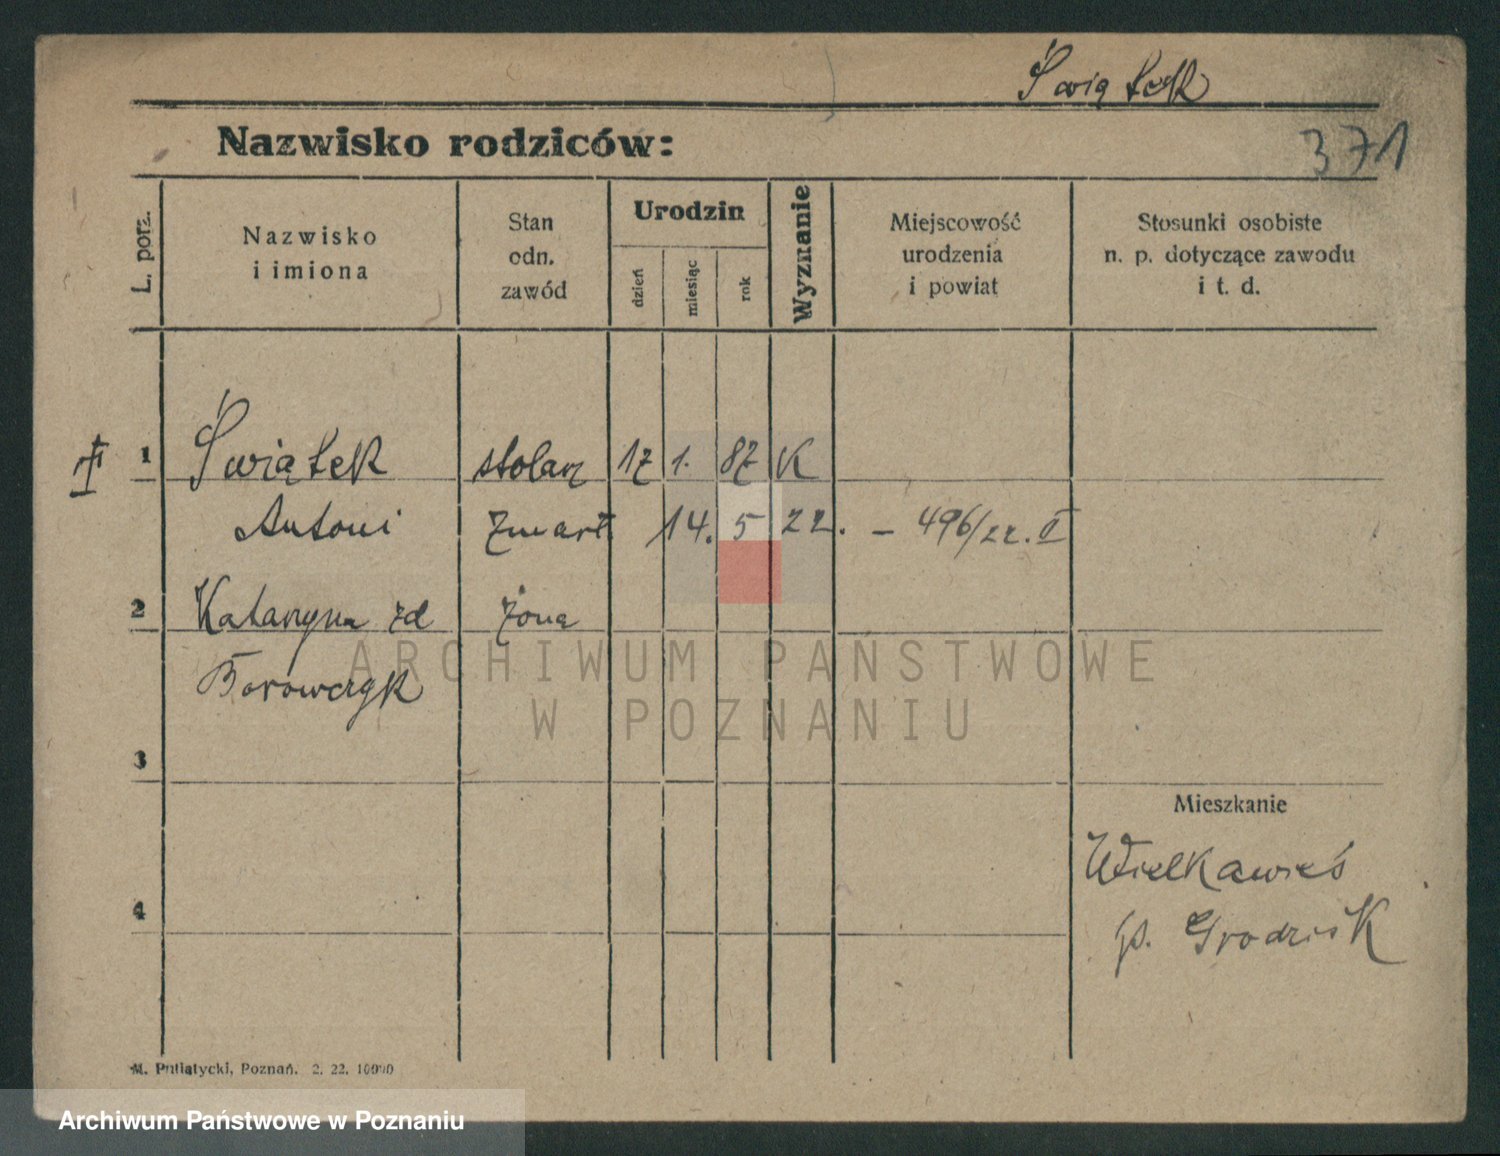 Świątek
Nazwisko rodziców:
371
L. porz.
Nazwisko
i imiona
Stan
odn.
zawód
Urodzin
dzień
miesiąc
rok
Wyznanie
Miejscowość
urodzenia
i powiat
Stosunki osobiste
n. p. dotyczące zawodu
i t. d.
1 Świątek stolarz 17 1. 87 K
Antoni zmarł 14. 5 22. – 496/22. II
2 Katarzyna zd żona
Borowczyk
3
Mieszkanie
Wielkawieś
p. Grodzisk
4
M. Putiatycki, Poznań. 2. 22. 10000
ARCHIWUM PAŃSTWOWE
W POZNANIU
Archiwum Państwowe w Poznaniu